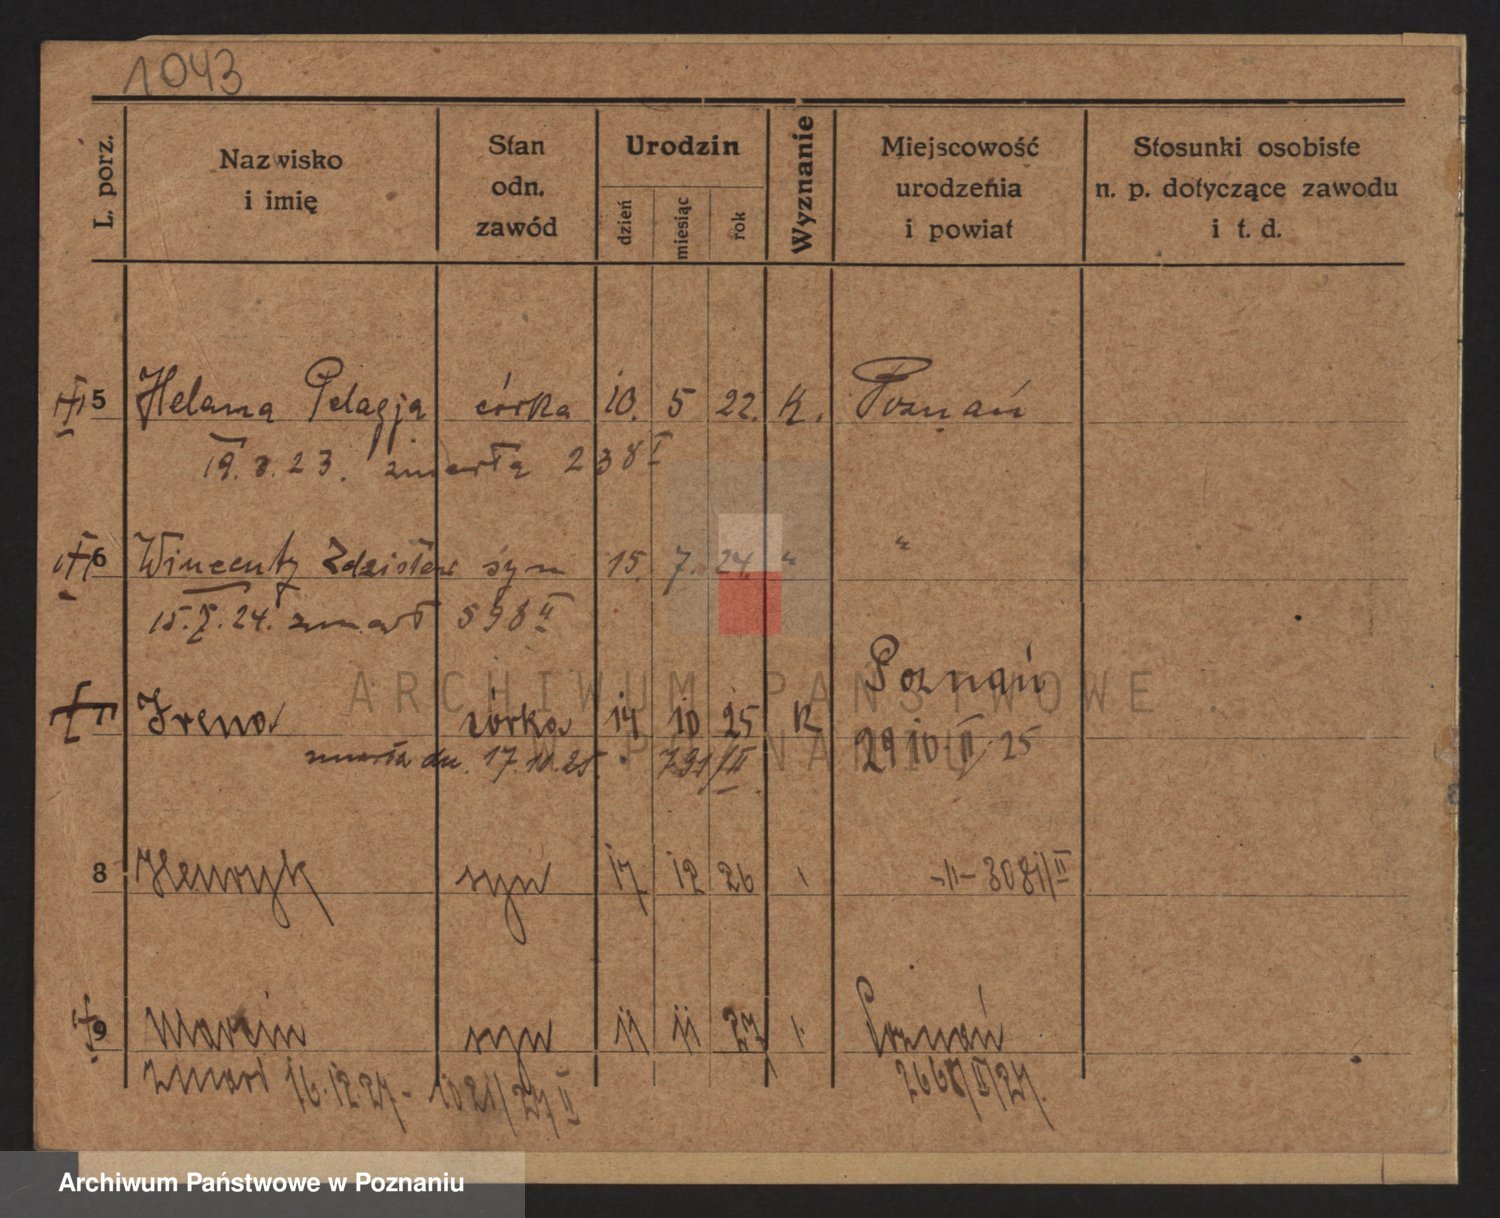 1043
L. porz.
Nazwisko
i imię
Stan
odn.
zawód
Urodzin
dzień
miesiąc
rok
Wyznanie
Miejscowość
urodzenia
i powiat
Stosunki osobiste
n. p. dotyczące zawodu
i t. d.
5 Helena Pelagja córka 10. 5 22. K. Poznań
19. 8. 23. zmarła 238 I
6 Wincenty Zdzisław syn 15. 7. 24. " "
15. 7. 24. zmarł 598 II
ARCHIWUM PAŃSTWOWE
W POZNANIU
Poznań
7 Irena córka 14 10 25 K
zmarła dn. 17.10.25. 791/II. 2910 II/25
8 Henryk syn 17 12 26 -"- 3081/II
9 Marcin syn 11 11 27 Poznań
zmarł 16.12.27 - 1021/27 II 2668/II/27.
Archiwum Państwowe w Poznaniu